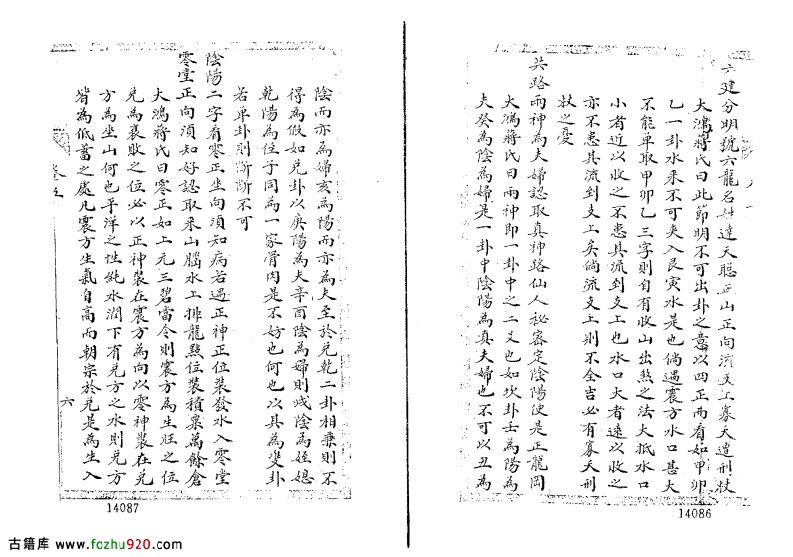 六建分明號六龍名姓達天聰正山正向流支上寡夭遭刑杖
大鴻蔣氏曰此節明不可出卦之意以四正而看如甲卯
乙一卦水來不可夾入艮寅水是也倘遇震方水口甚大
不能單取甲卯乙三字則自有收山出煞之法大抵水口
小者近以收之不患其流到支上也水口大者遠以收之
亦不患其流到支上矣倘流支上則不全吉必有寡夭刑
杖之憂
共路兩神為夫婦認取真神路仙人秘密定陰陽便是正龍岡
大鴻蔣氏曰兩神即一卦中之二爻也如坎卦壬為陽為
夫癸為陰為婦是一卦中陰陽為真夫婦也不可以丑為
14086
陰而亦為婦亥為陽而亦為夫至於兌乾二卦相兼則不
得為假如兌卦以庚陽為夫辛酉陰為婦則戌陰為姪媳
乾陽為位子同為一家骨肉是不妨也何也以其為雙卦
若單卦則斷斷不可
陰陽二字看零正坐向須知病若遇正神正位裝發水入零堂
零堂正向須知好認取來山腦水上排龍點位裝積粟萬餘倉
大鴻蔣氏曰零正如上元三碧當令則震方為生旺之位
兌為衰敗之位必以正神裝在震方為向以零神裝在兌
方為坐山何也平洋之性純水潤下有兌方之水則兌方
皆為低蓄之處凡震方生氣自高而朝宗於兌是為生入
六
14087
古籍库 www.fozhu920.com